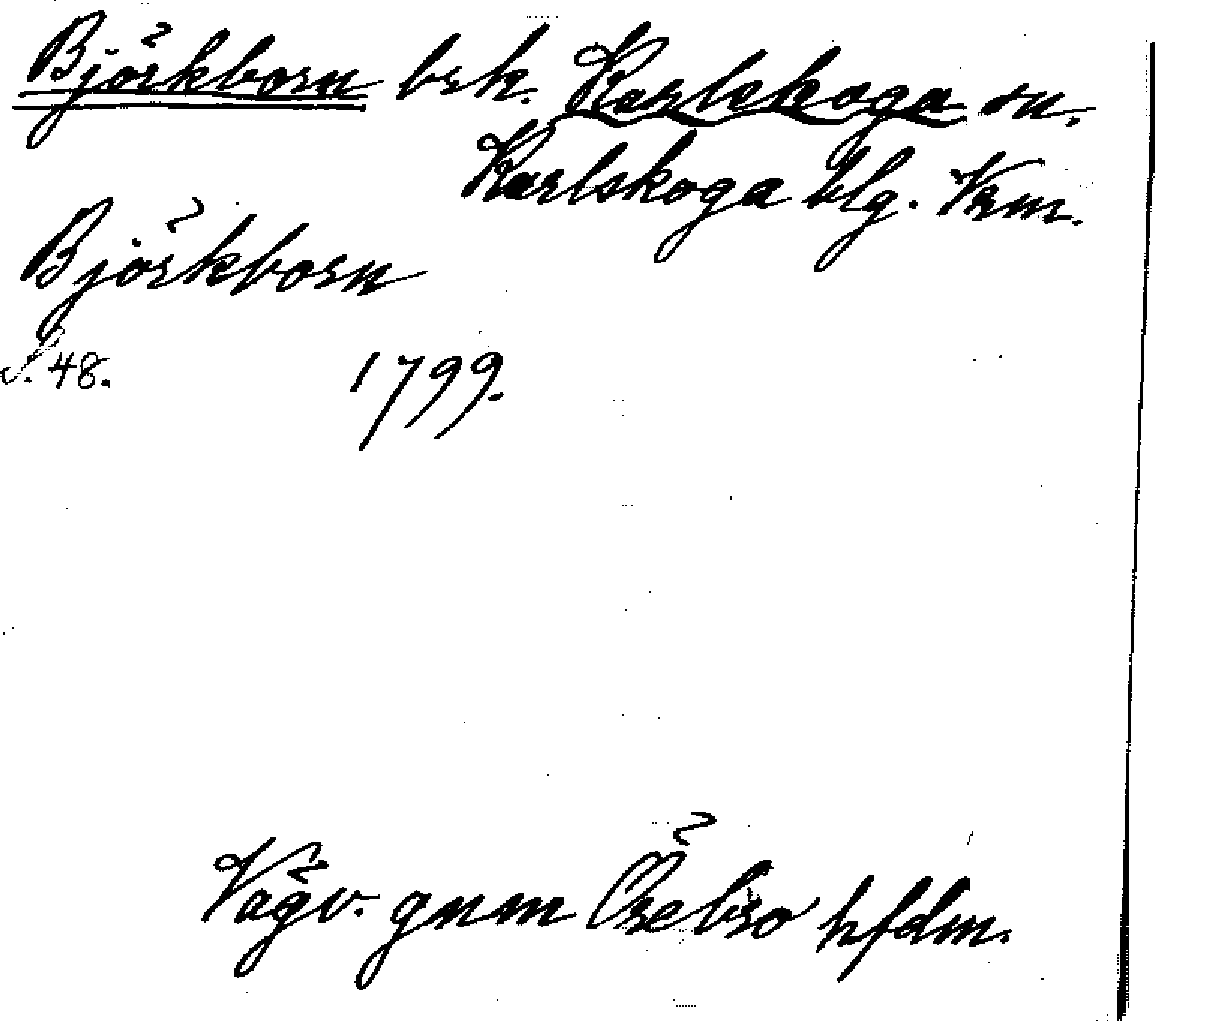 Björkborn brk. Karlskoga sn.
Karlskoga blg. Vrm.
Björkborn
S. 48. 1799.
Vägv. gnm Örebro hfdm.